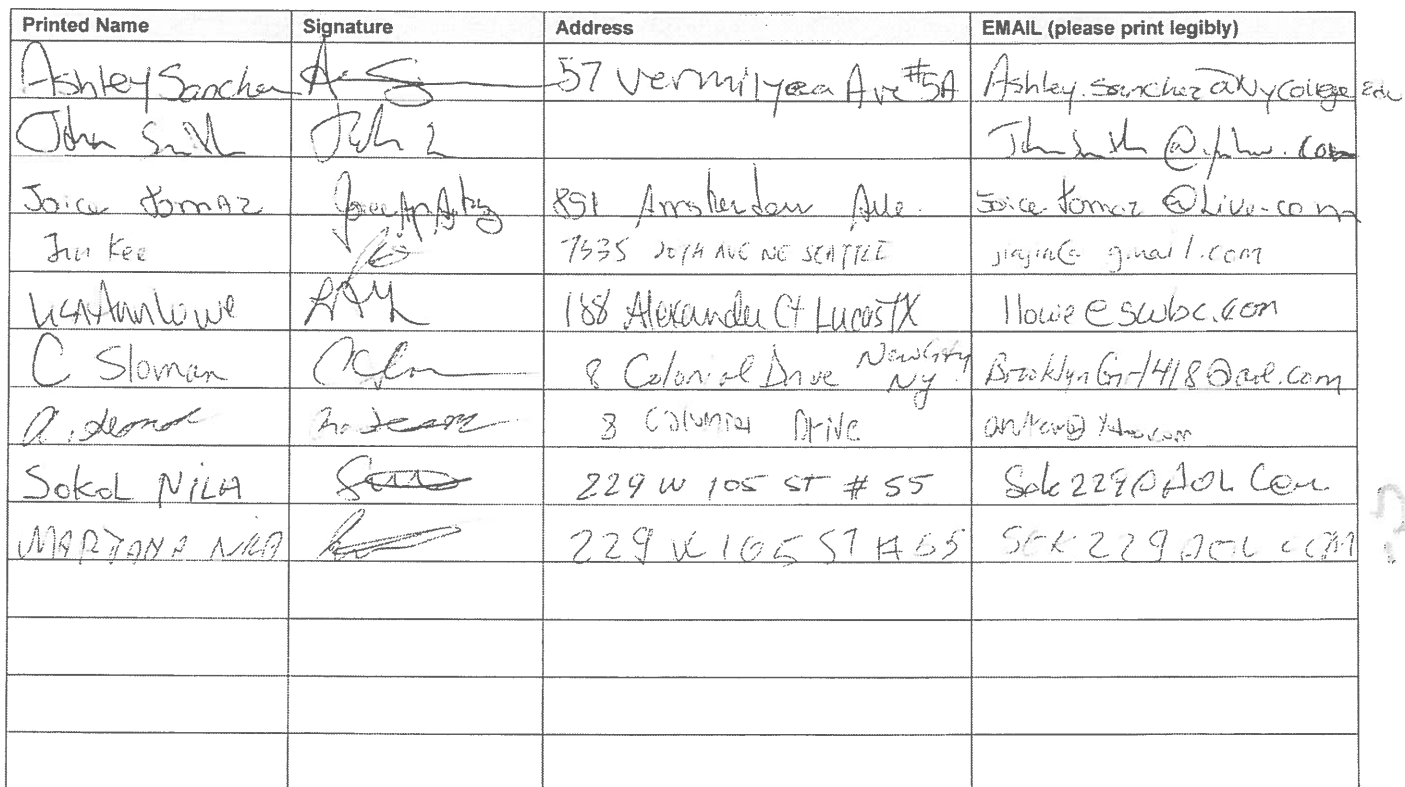 Printed Name Signature Address EMAIL (please print legibly)
Ashley Sanchez 57 Vermilyea Ave #5A Ashley.Sanchez@Nycollege.edu
John Smith John Smith@ .com
Joice Tomaz 851 Amsterdam Ave. Joice.tomaz@Live.com
Jin Kee 7535 20TH AVE NE SEATTLE jinjin@gmail.com
LisaAnn Lowe 188 Alexander Ct Lucas TX llowe@swbc.com
C Sloman 8 Colonial Drive New City NY BrooklynGirl418@aol.com
a. 8 Colonial Drive
Sokol NILA 229 W 105 ST # 55 Sok229@AOL Com
MARJANA NILA 229 W 105 ST #55 SOK 229 AOL COM